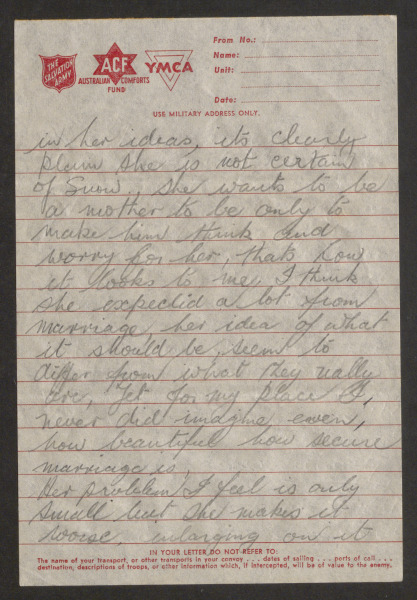 THE SALVATION ARMY
ACF
AUSTRALIAN COMFORTS FUND
YMCA
From No.:
Name:
Unit:
Date:
USE MILITARY ADDRESS ONLY.
in her ideas, its clearly
plain she is not certain
of Snow, she wants to be
a mother to be only to
make him think and
worry for her, thats how
it looks to me, I think
she expectid a lot from
marriage, her idea of what
it should be, seem to
differ from what they really
are, yet for my place I,
never did imagine even,
how beautiful how secure
marriage is,
Her problem I feel is only
small but she makes it
worse, enlarging on it
IN YOUR LETTER DO NOT REFER TO:
The name of your transport, or other transports in your convoy . . . dates of sailing . . . ports of call . . .
destination, descriptions of troops, or other information which, if intercepted, will be of value to the enemy.